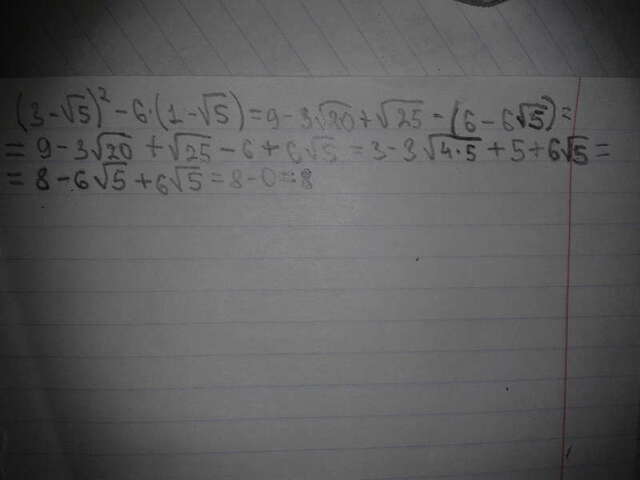 (3-√5)² - 6·(1-√5) = 9 - 3√20 + √25 - (6 - 6√5) =
= 9 - 3√20 + √25 - 6 + 6√5 = 3 - 3√4·5 + 5 + 6√5 =
= 8 - 6√5 + 6√5 = 8 - 0 = 8